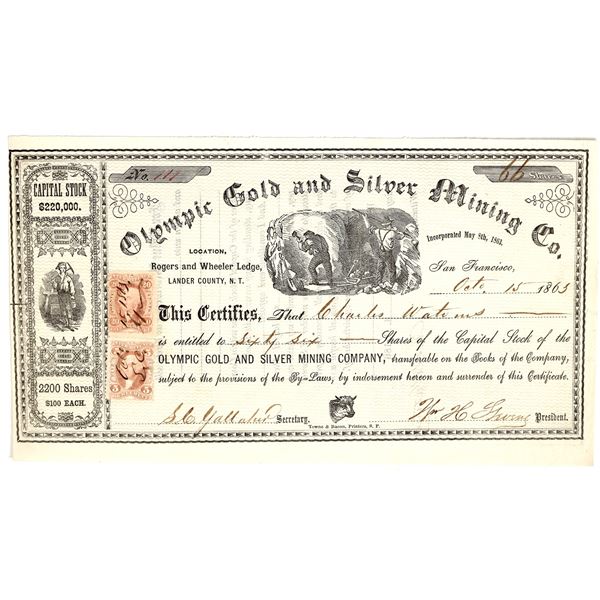 No. 111
66 Shares
CAPITAL STOCK
$220,000.
Olympic Gold and Silver Mining Co.
LOCATION,
Rogers and Wheeler Ledge,
LANDER COUNTY, N. T.
Incorporated May 8th, 1863.
San Francisco,
Oct. 15 1863
This Certifies, That Charles Watrous
is entitled to Sixty Six Shares of the Capital Stock of the
OLYMPIC GOLD AND SILVER MINING COMPANY, transferable on the Books of the Company,
subject to the provisions of the By-Laws, by indorsement hereon and surrender of this Certificate.
2200 Shares
$100 EACH.
5 5
Secretary.
Wm H. President.
Towne & Bacon, Printers, S. F.